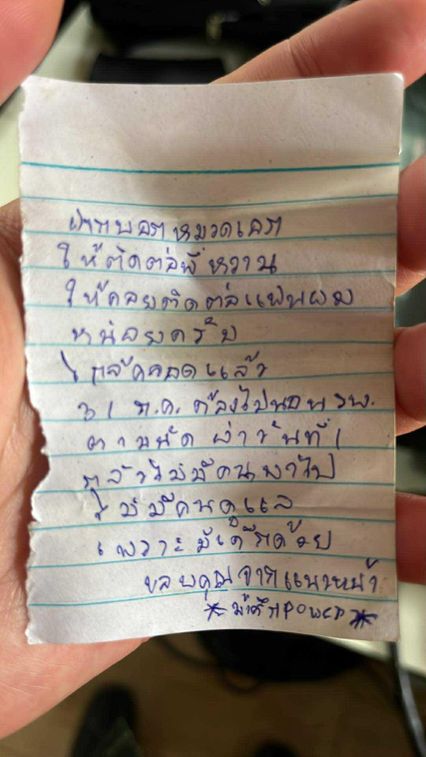 ฝากบอกหมวดเอก
ให้ติดต่อพี่หวาน
ให้คอยติดต่อแฟนผม
หน่อยครับ
ใกล้คลอดแล้ว
31 ธ.ค. ต้องไปนอน รพ.
ตามนัด ผ่าวันที่ 1
กลัวไม่มีคนพาไป
ไม่มีคนดูแล
เพราะมีเด็กด้วย
ขอบคุณจาก
POWER